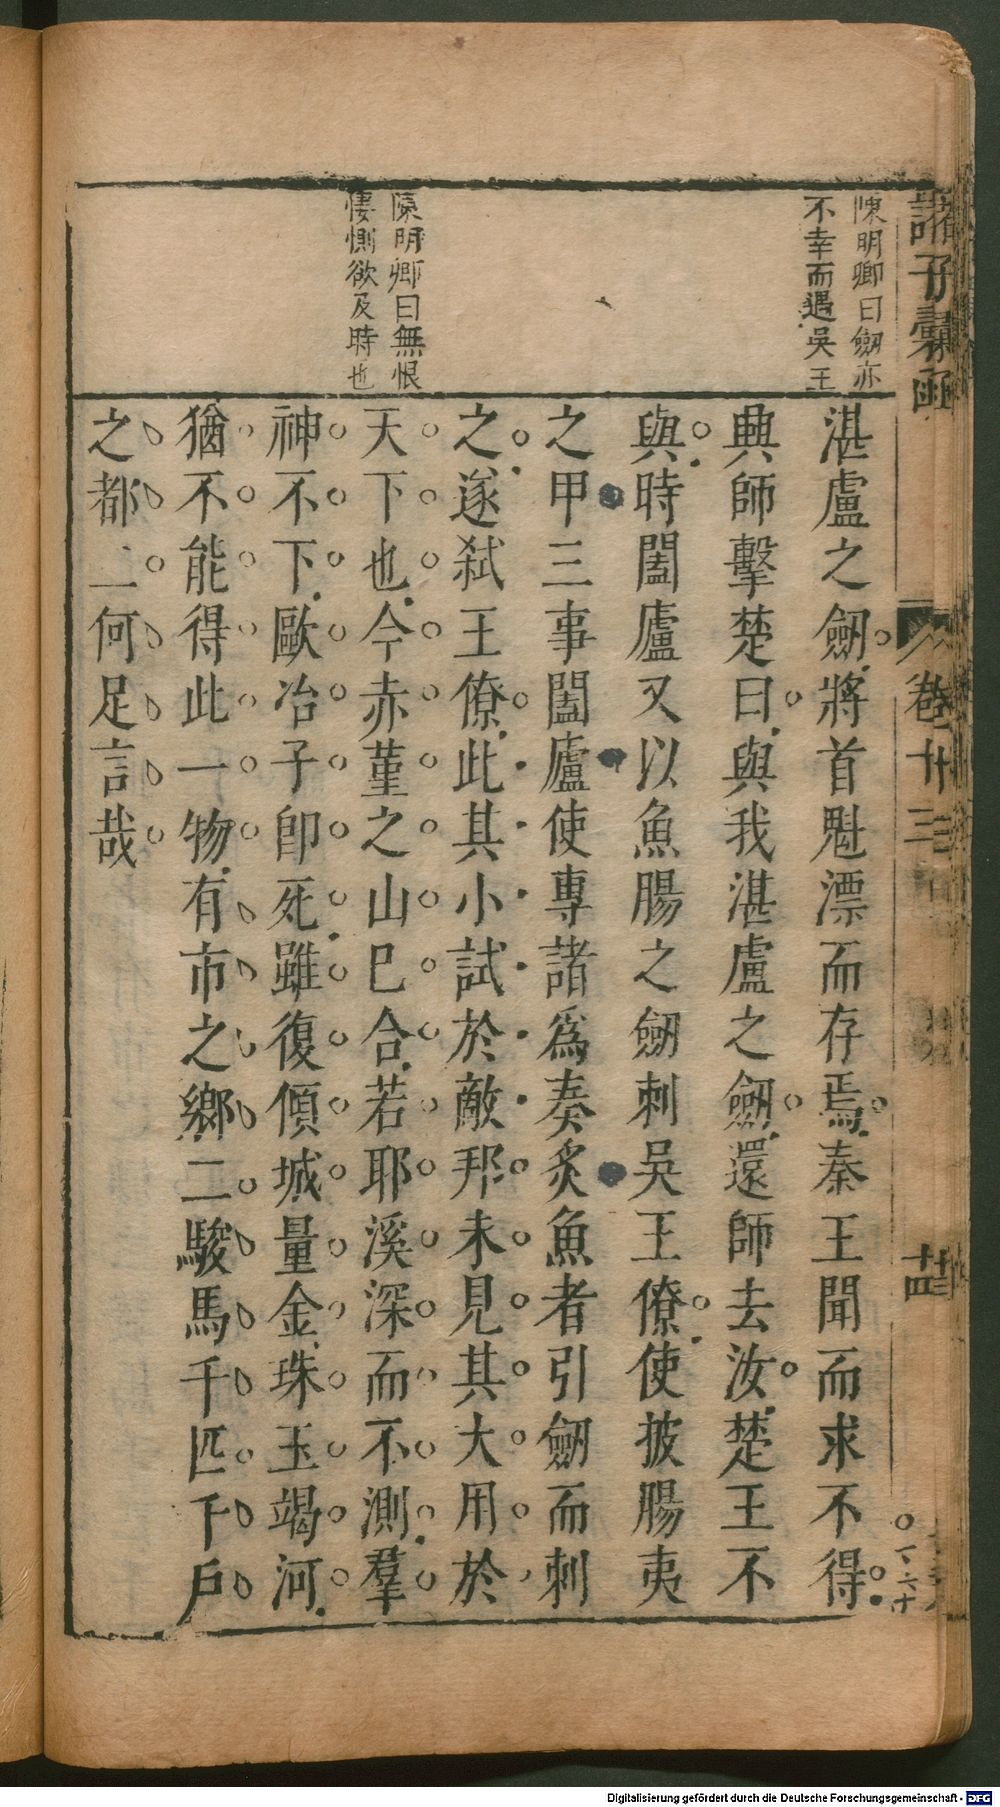 諸子彙函
卷廿三
陳明卿曰劒亦
不幸而遇吳王
陳明卿曰無恨
悽惻欲及時也
湛盧之劒將首魁漂而存焉秦王聞而求不得
興師擊楚曰與我湛盧之劒還師去汝楚王不
與時闔廬又以魚腸之劒刺吳王僚使披腸夷
之甲三事闔廬使專諸爲奏炙魚者引劒而刺
之遂弑王僚此其小試於敵邦未見其大用於
天下也今赤堇之山巳合若耶溪深而不測羣
神不下歐冶子卽死雖復傾城量金珠玉竭河
猶不能得此一物有市之鄉二駿馬千匹千戶
之都二何足言哉
Digitalisierung gefördert durch die Deutsche Forschungsgemeinschaft - DFG